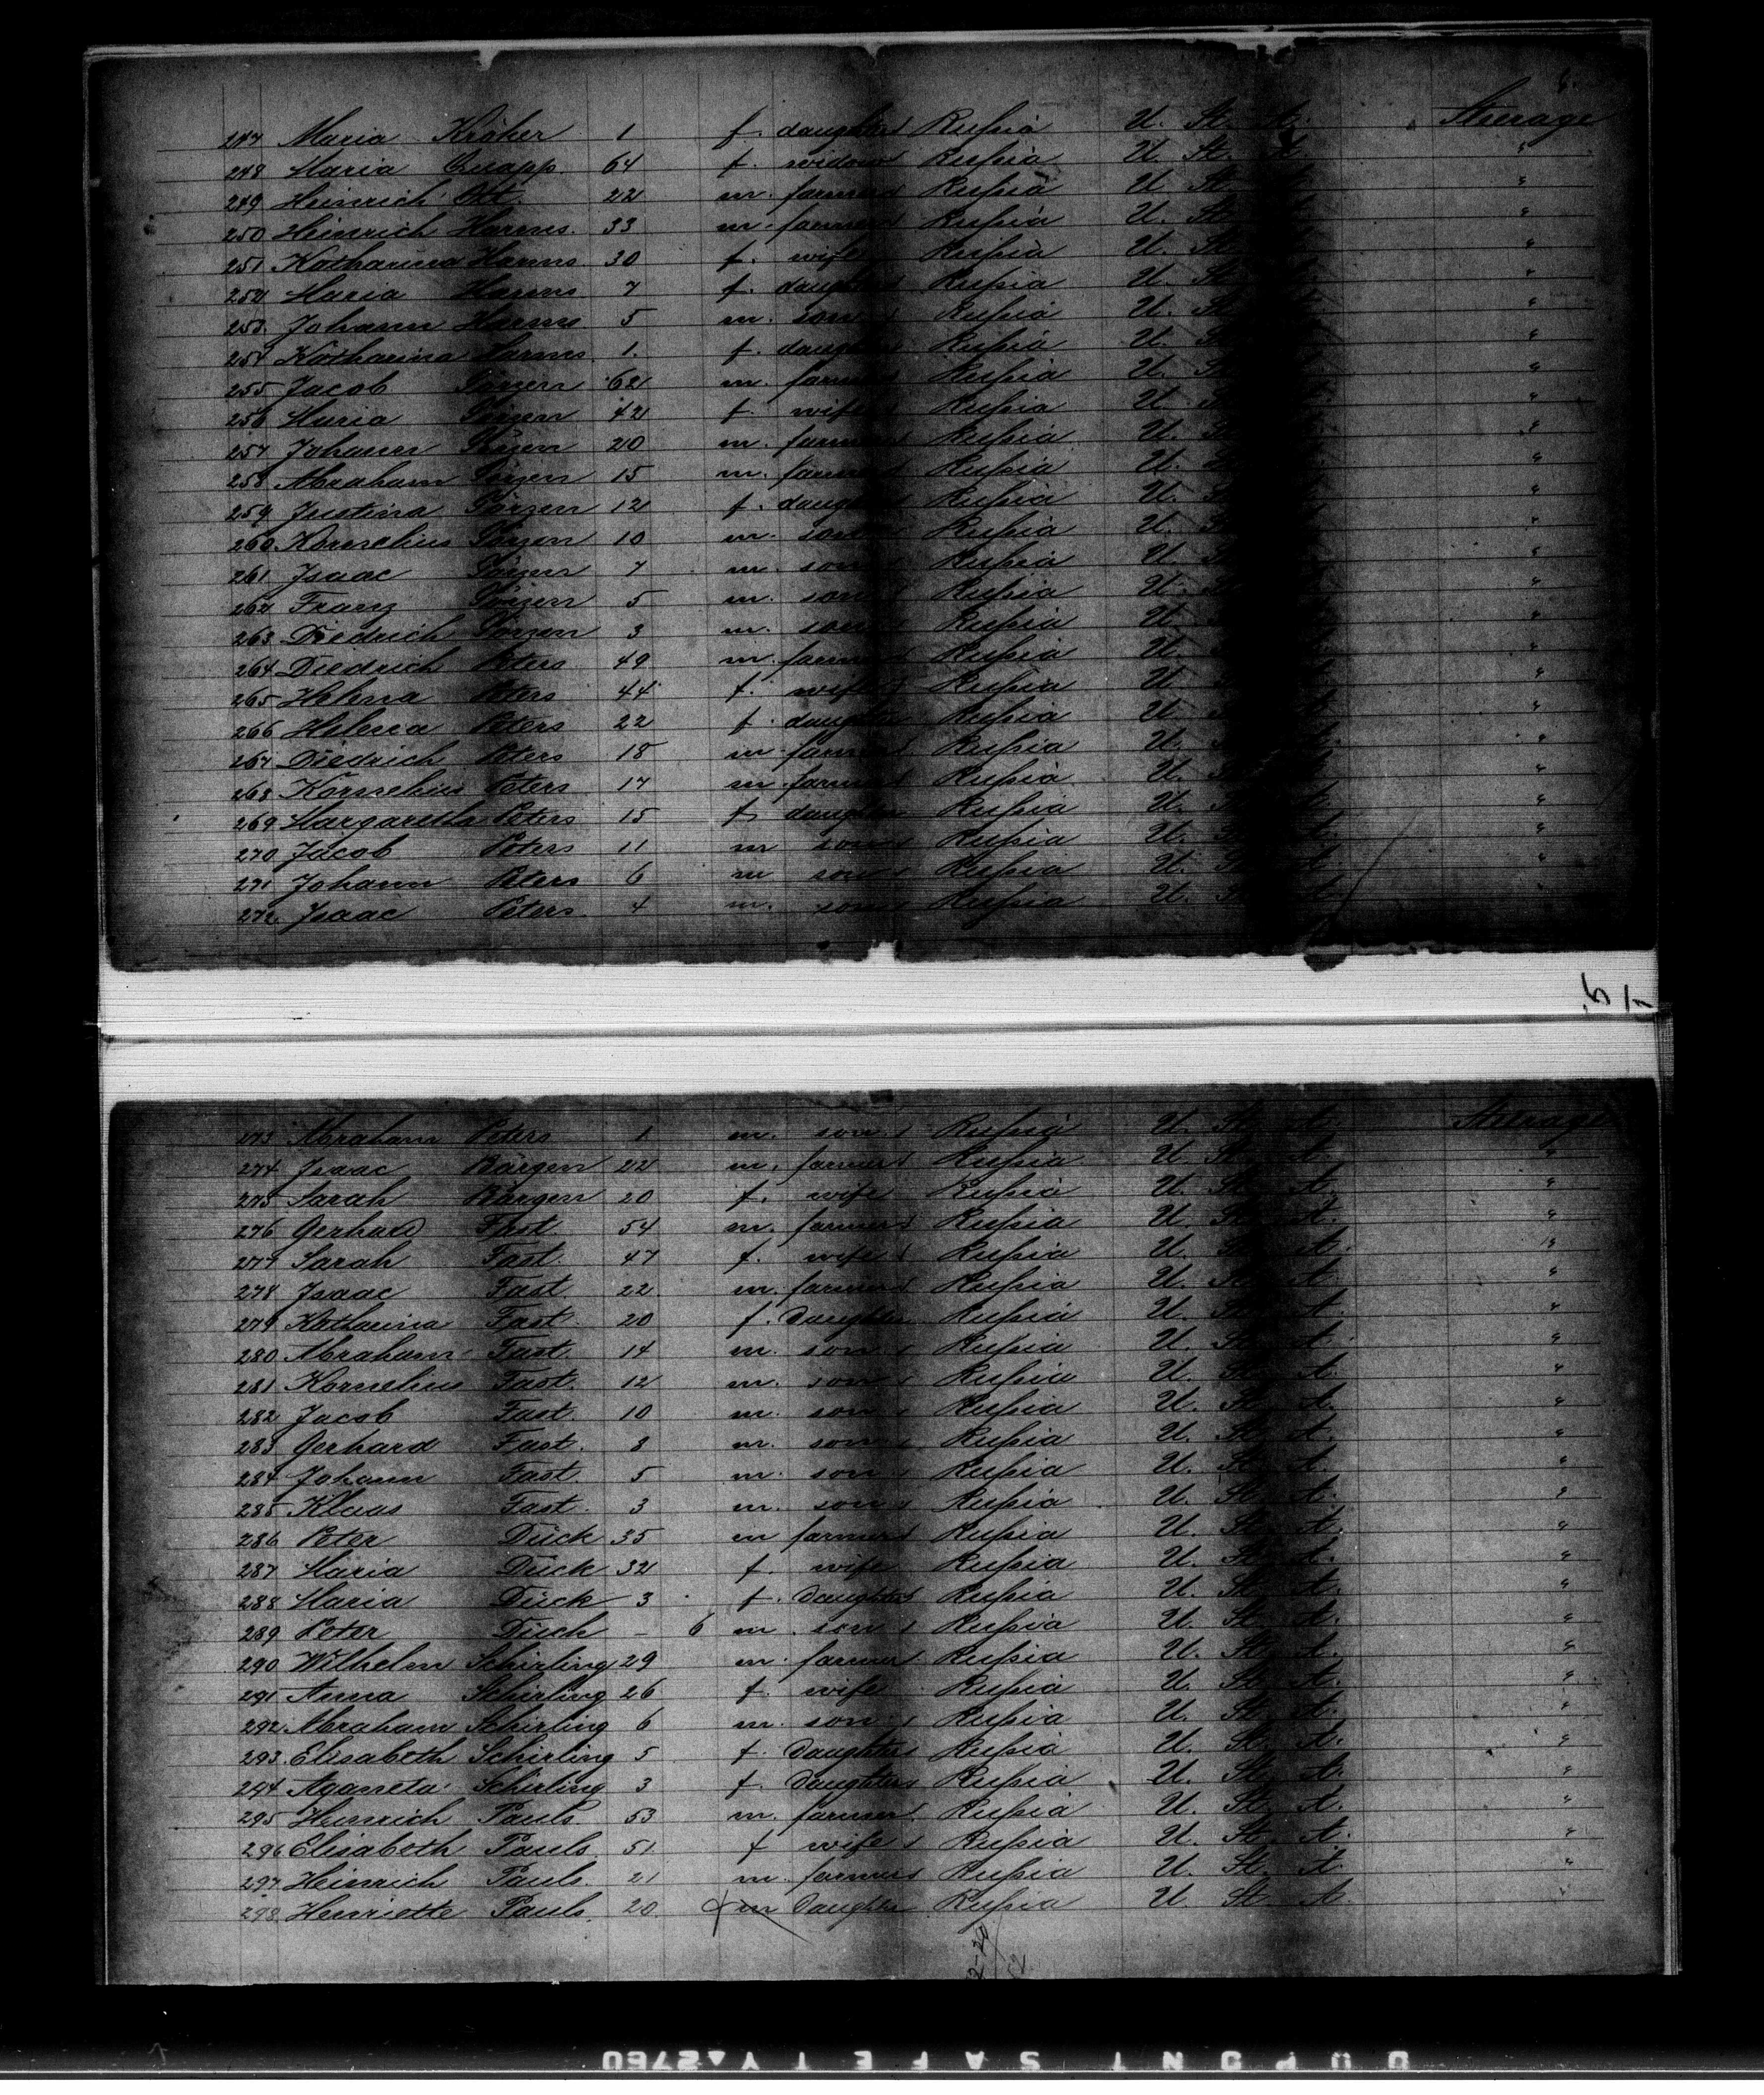 6.
247 Maria Kröker 1 f. daughter Rußia U. St. A. Steerage
248 Maria Quapp 64 f. widow Rußia U. St. A "
249 Heinrich Ott 22 m. farmer Rußia U. St. "
250 Heinrich Harms. 33 m. farmer Rußia U. St. "
251 Katharina Harms 30 f. wife Rußia U. St. "
252 Maria Harms 7 f. daughter Rußia U. St. "
253. Johann Harms 5 m. son Rußia U. St. "
254 Katharina Harms. 1. f. daughter Rußia U. St. "
255 Jacob 62 m. farmer Rußia U. St. "
256 Maria 42 f. wife Rußia U. St. "
257 Johann 20 m. farmer Rußia U. "
258 Abraham 15 m. farmer Rußia U. "
259 Justina 12 f. daughter Rußia U. "
260 Kornelius 10 m. son Rußia U. "
261 Isaac 7 m. son Rußia U. "
262 Franz 5 m. son Rußia U. "
263 Diedrich 3 m. son Rußia U. "
264 Diedrich Peters 49 m. farmer Rußia U. "
265 Helena Peters 44 f. wife Rußia U. "
266 Helena Peters 22 f. daughter Rußia U. "
267 Diedrich Peters 18 m. farmer Rußia U. "
268 Kornelius Peters 17 m farmer Rußia U. "
269 Margaretha Peters 15 f daughter Rußia U. "
270 Jacob Peters 11 m son Rußia U. "
271 Johann Peters 6 m son Rußia U. St. A. "
272. Isaac Peters. 4 m. son Rußia U. St. A. "
273 Abraham Peters 1 m. son Rußia U. St. A. Steerage
274 Isaac Bärgen 22 m. farmer Rußia U. St. A. "
275 Sarah Bärgen 20 f. wife Rußia U. St. A. "
276 Gerhard Fast 54 m. farmer Rußia U. St. A. "
277 Sarah Fast. 47 f. wife Rußia U. St. A. "
278 Isaac Fast 22 m. farmer Rußia U. St. A "
279 Katharina Fast. 20 f. Daughter Rußia U. St. A. "
280 Abraham Fast. 14 m. son Rußia U. St. A. "
281 Kornelius Fast. 12 m. son Rußia U. St. A. "
282 Jacob Fast. 10 m. son Rußia U. St. A. "
283 Gerhard Fast. 8 m. son Rußia U. St. A. "
284 Johann Fast. 5 m. son Rußia U. St. A. "
285 Klaas Fast. 3 m. son Rußia U. St. A. "
286 Peter Dück 35 m farmer Rußia U. St. A. "
287 Maria Dück 32 f. wife Rußia U. St. A. "
288 Maria Dück 3 f. Daughter Rußia U. St. A. "
289 Peter Dück – 6 m. son Rußia U. St. A. "
290 Wilhelm Schirling 29 m. farmer Rußia U. St. A. "
291 Anna Schirling 26 f. wife Rußia U. St. A. "
292 Abraham Schirling 6 m. son Rußia U. St. A. "
293. Elisabeth Schirling 5 f. Daughter Rußia U. St. A. "
294 Aganeta Schirling 3 f. Daughter Rußia U. St. A. "
295 Heinrich Pauls. 53 m. farmer Rußia U. St. A. "
296 Elisabeth Pauls. 51 f wife Rußia U. St. A. "
297 Heinrich Pauls. 21 m. farmer Rußia U. St. A. "
298 Henriette Pauls. 20. f m Daughter Rußia U. St. A. "
DUPONT SAFETY▲2760